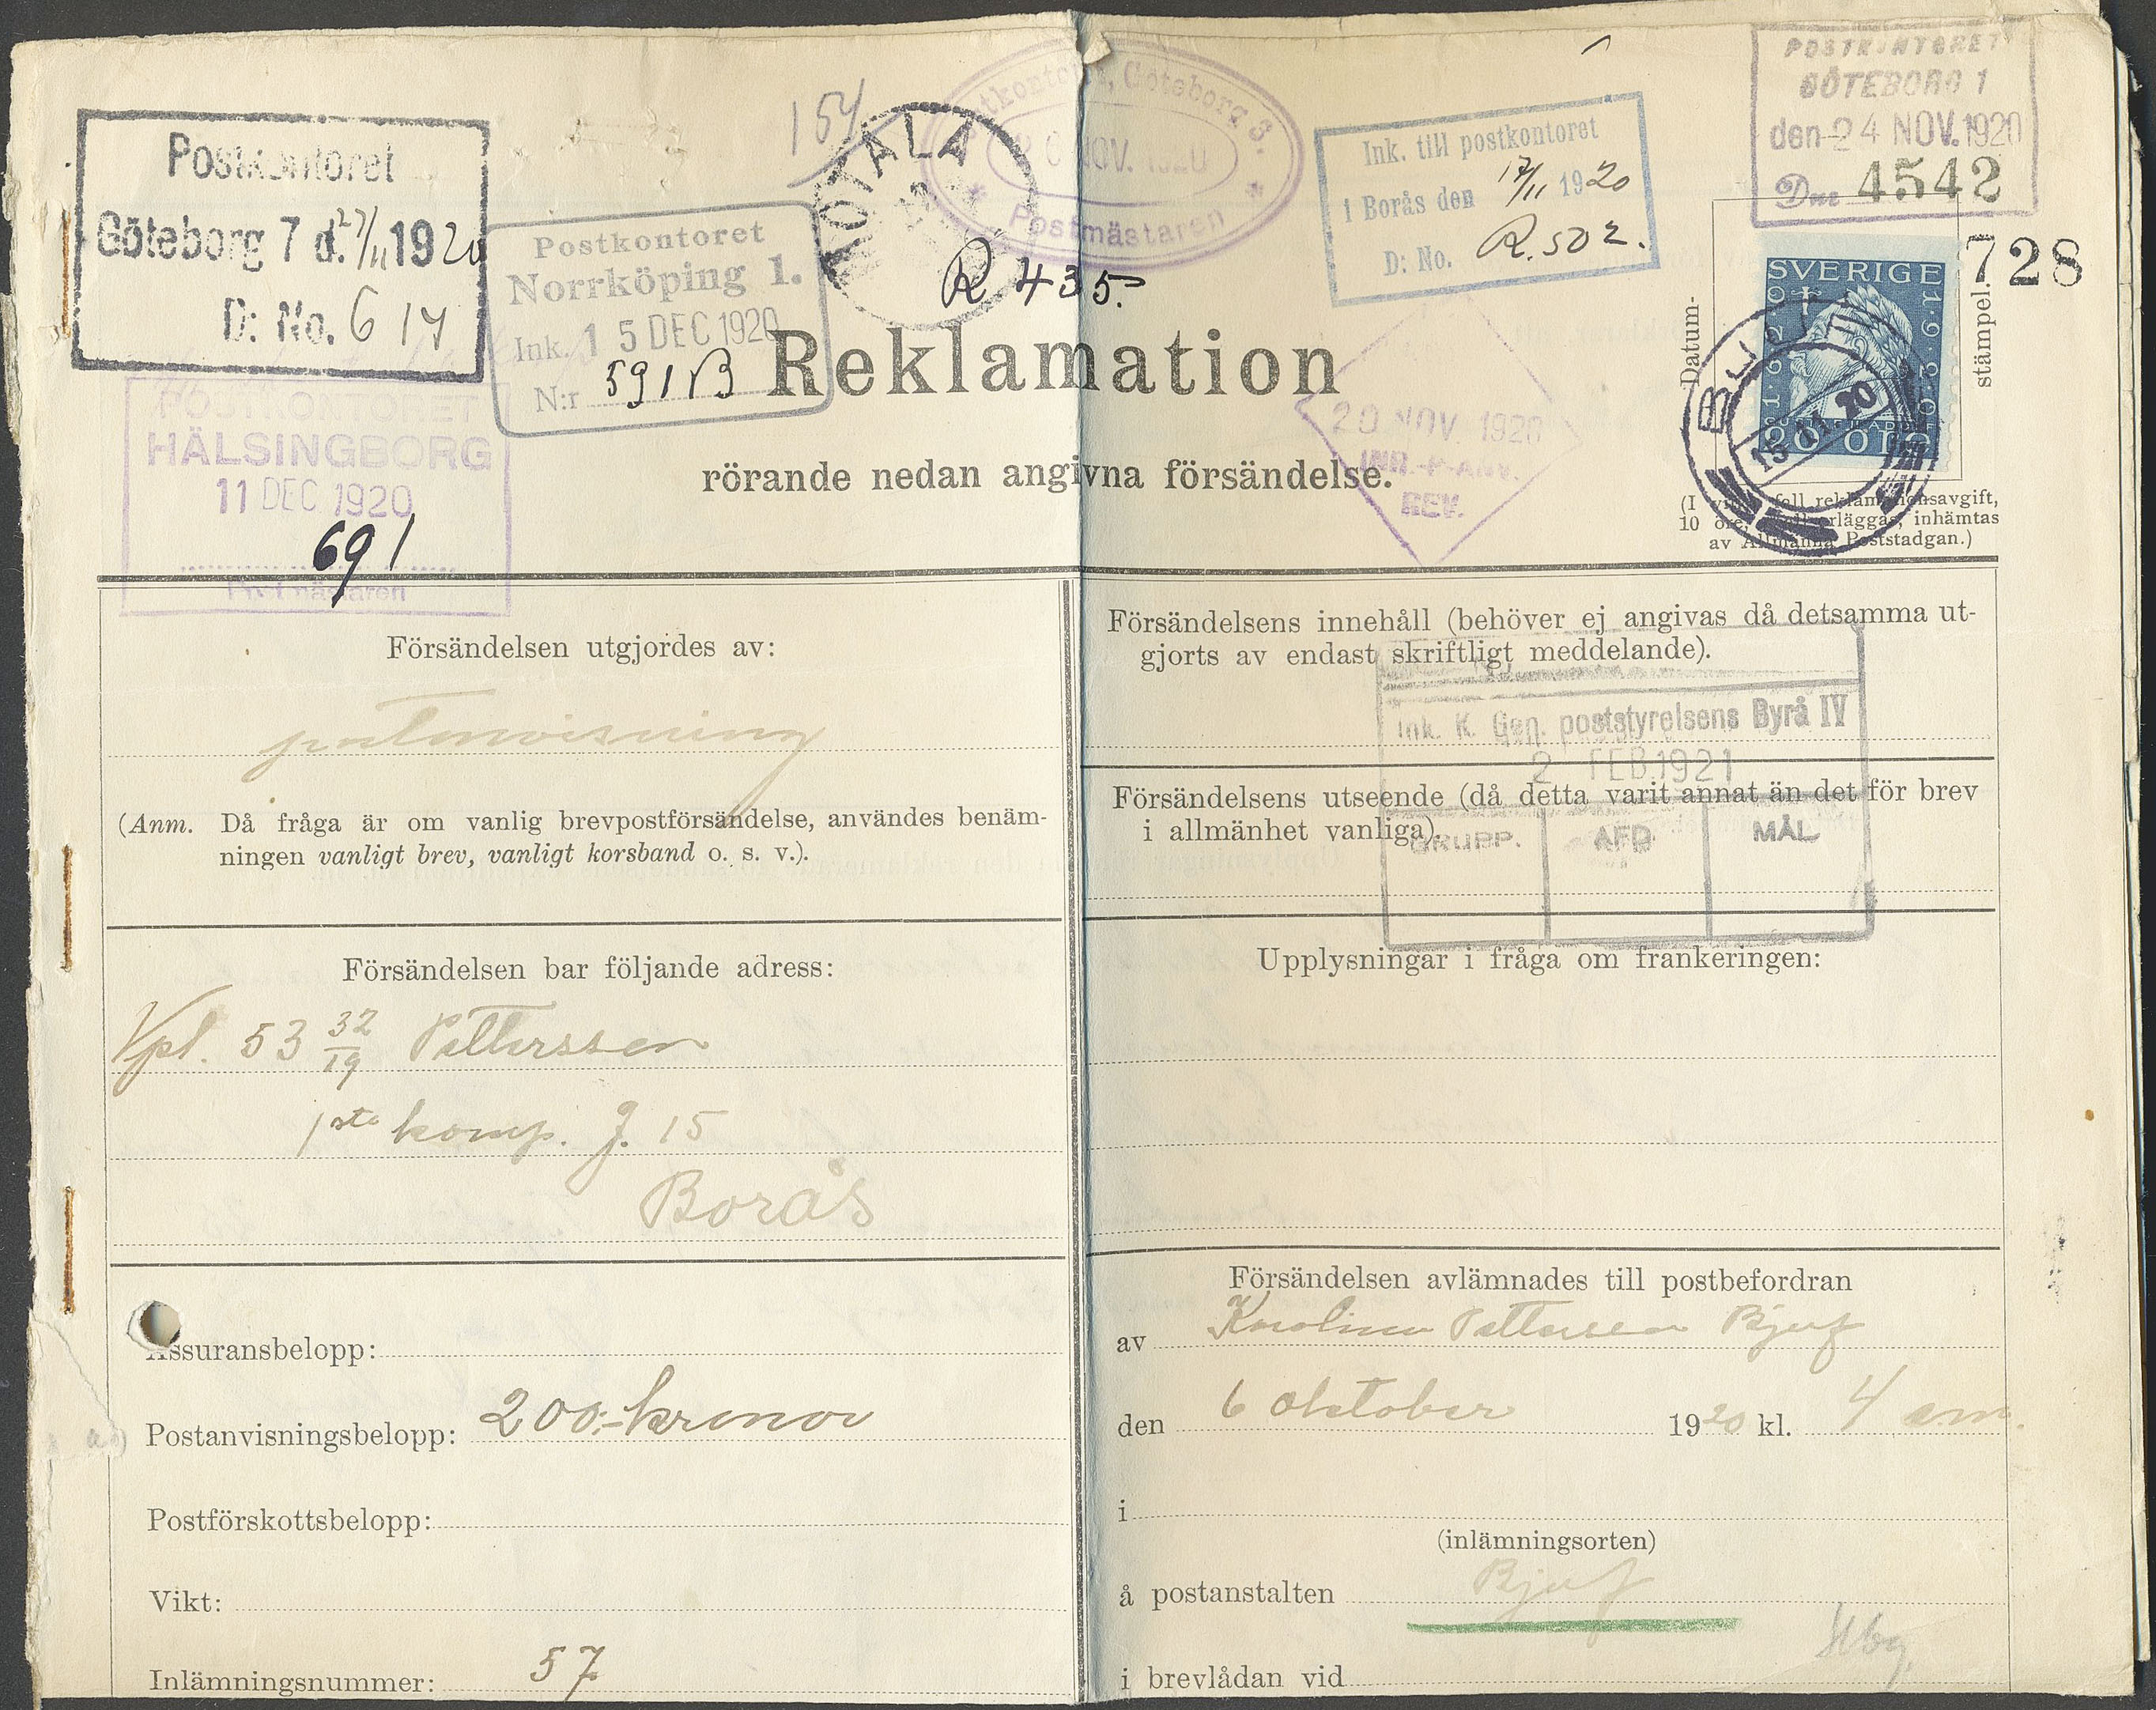 Postkontoret
Göteborg 7 d. 27/11 1920
D: No. 614
154
MOTALA
Postkontoret, Göteborg 3.
20 NOV. 1920
Postmästaren
R 435.
Ink. till postkontoret
i Borås den 17/11 1920
D: No. R. 502.
POSTKONTORET
GÖTEBORG 1
den 24 NOV. 1920
Dnr 4542
728
Postkontoret
Norrköping 1.
Ink. 15 DEC 1920
N:r 591 B
POSTKONTORET
HÄLSINGBORG
11 DEC. 1920
691
Postmästaren
Reklamation
rörande nedan angivna försändelse.
20 NOV. 1920
INR.-P-ANV.
REV.
Datum-
stämpel.
SVERIGE
1920
20 ÖRE
BJUV
15.11.20
(I fall reklamationsavgift,
10 öre, erläggas, inhämtas
av Allmänna Poststadgan.)
Försändelsen utgjordes av:
postanvisning
(Anm. Då fråga är om vanlig brevpostförsändelse, användes benäm-
ningen vanligt brev, vanligt korsband o. s. v.).
Försändelsen bar följande adress:
Vpl. 53 32/19 Pettersson
1sta komp. J. 15
Borås
Assuransbelopp:
Postanvisningsbelopp: 200:- kronor
Postförskottsbelopp:
Vikt:
Inlämningsnummer: 57
Försändelsens innehåll (behöver ej angivas då detsamma ut-
gjorts av endast skriftligt meddelande).
Ink. K. Gen. poststyrelsens Byrå IV
2 FEB. 1921
GRUPP. AFD. MÅL
Försändelsens utseende (då detta varit annat än det för brev
i allmänhet vanliga).
Upplysningar i fråga om frankeringen:
Försändelsen avlämnades till postbefordran
av Karolina Pettersson Bjuf
den 6 Oktober 1920 kl. 4 em.
i
(inlämningsorten)
å postanstalten Bjuf
Hbg.
i brevlådan vid